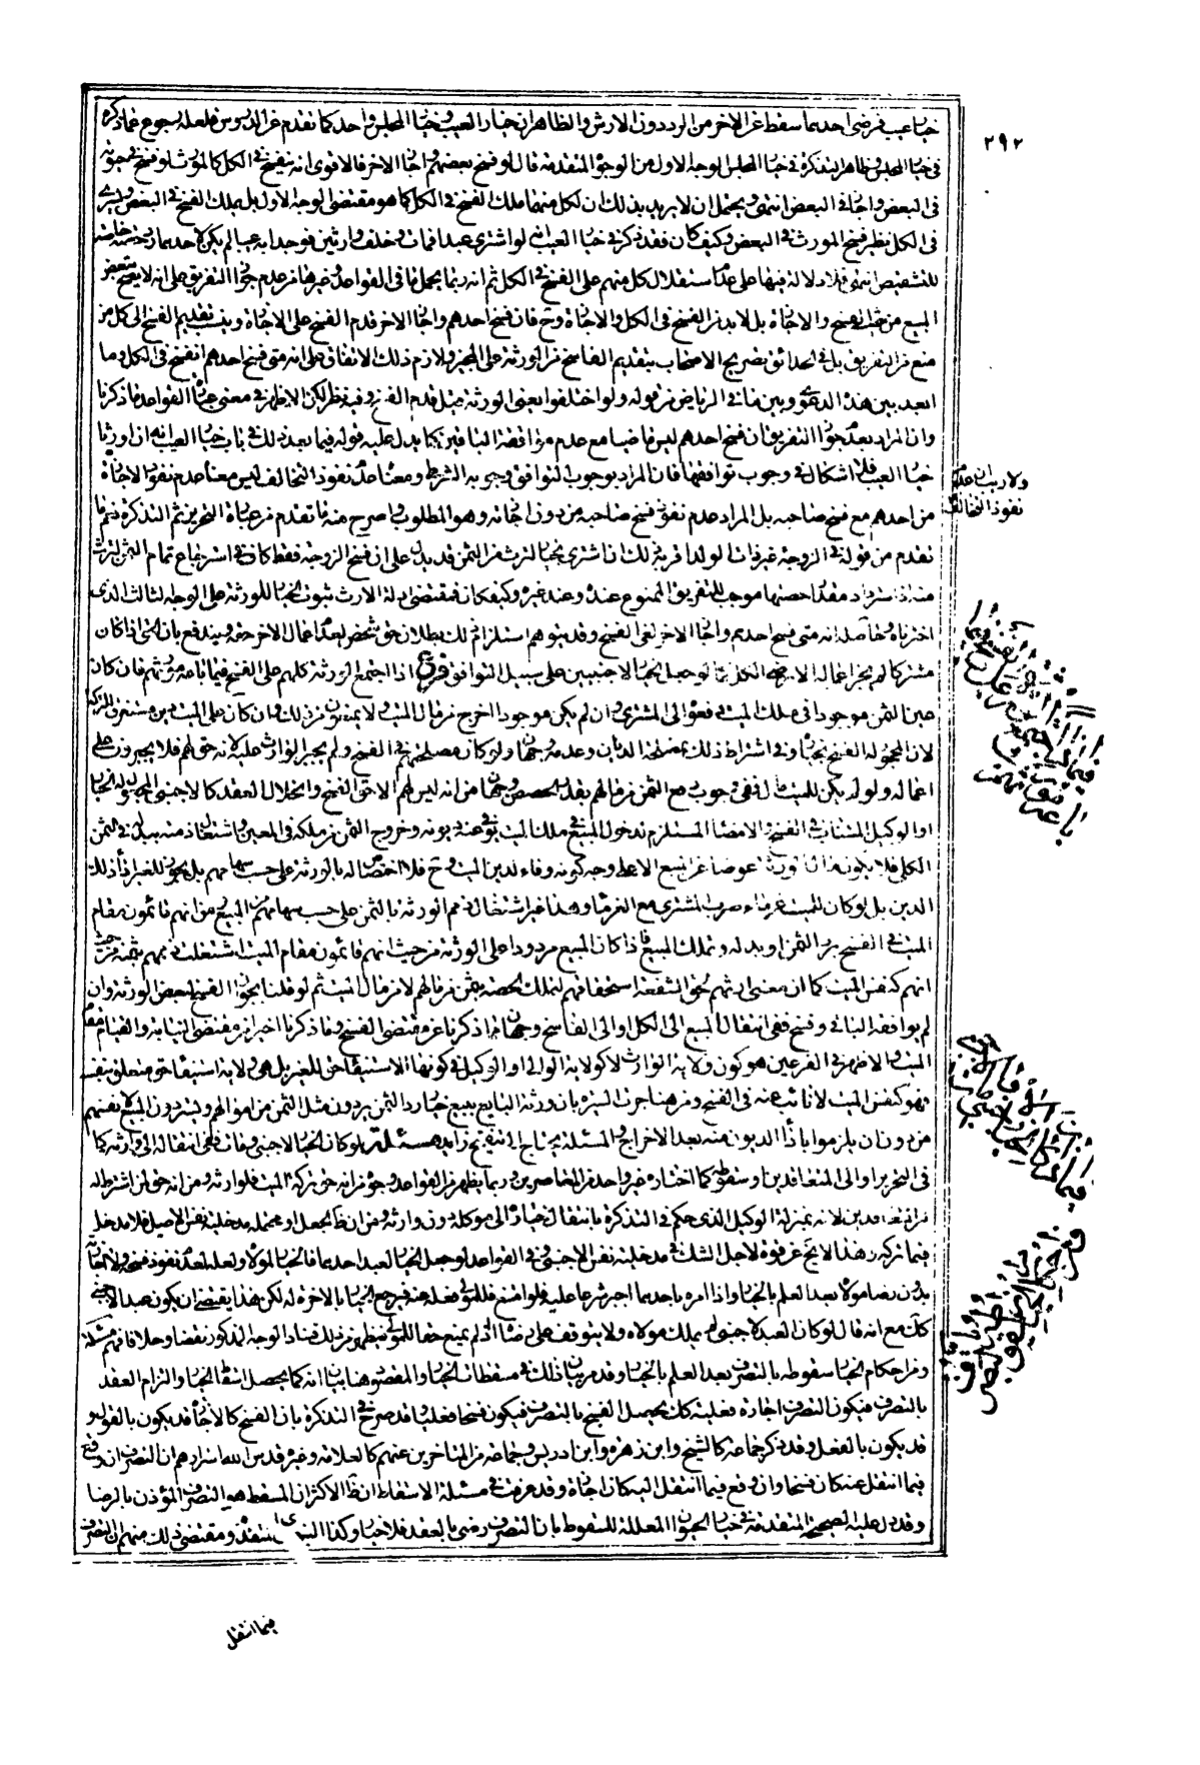 ٢٩٢
خيار عيب فرضي احدهما سقط عن الاخر من الرد دون الارش والظاهر ان خيار العيب وخيار المجلس واحد كما تقدم عن الدروس فلعله رجوع عما ذكره
في خيار المجلس وظاهر التذكرة في خيار المجلس الوجه الاول من الوجوه المتقدمة قال لو فسخ بعضهم واجاز الاخر فالاقوى انه ينفسخ في الكل كالمورث لو فسخ في حيوته
في البعض واجاز في البعض انتهى ويحتمل ان لا يريد بذلك ان لكل منهما ملك الفسخ في الكل كما هو مقتضى الوجه الاول بل يملك الفسخ في البعض ويسري
في الكل نظير فسخ المورث في البعض وكيف كان فقد ذكر في خيار العيب انه لو اشترى عبدا فمات وخلف وارثين فوجدا به عيبا لم يكن لاحدهما رد حصته خاصة
للتشقيص انتهى فلا دلالة فيها على عدم استقلال كل منهم على الفسخ في الكل ثم انه ربما يحمل ما في القواعد وغيرها من عدم جواز التفريق على انه لا يصح تبعض
المبيع من حيث الفسخ والاجازة بل لا بد من الفسخ في الكل والاجازة وح فان فسخ احدهم واجاز الاخر قدم الفسخ على الاجازة وينسب تقديم الفسخ الى كل من
منع من التفريق بل في الحدائق تصريح الاصحاب بتقديم الفاسخ من الورثة على المجيز ولازم ذلك الاتفاق على انه متى فسخ احدهم انفسخ في الكل وما
ابعد بين هذه الدعوى وبين ما في الرياض من قوله ولو اختلفوا يعني الورثة قيل قدم الفسخ وفيه نظر لكن الاظهر في معنى عبارة القواعد ما ذكرنا
وان المراد بعدم جواز التفريق ان فسخ احدهم ليس ماضيا مع عدم موافقة الباقين كما يدل عليه قوله فيما بعد ذلك في باب خيار العيب انه ان اورثا
خيار العيب فلا اشكال في وجوب توافقهما فان المراد بوجوب التوافق وجوبه الشرطي ومعناه عدم نفوذ التخالف ليس معناه عدم نفوذ الاجازة
ولا ريب ان عدم
نفوذ التخالف
من احدهم مع فسخ صاحبه بل المراد عدم نفوذ فسخ صاحبه من دون اجازته وهو المطلوب واصرح منه ما تقدم من عبارة التحرير ثم التذكرة نعم ما
تقدم من قوله في الزوجة غير ذات الولد اقربه ذلك ان اشترى بخيار لترث من الثمن قد يدل على ان فسخ الزوجة فقط كاف في استرجاع تمام الثمن لترث
منه اذ استرداد مقدار حصتها موجب للتفريق الممنوع عنده وعند غيره وكيف كان فمقتضى ادلة الارث ثبوت الخيار للورثة على الوجه الثالث الذي
اخترناه وحاصله انه متى فسخ احدهم واجاز الاخر لغى الفسخ وقد يتوهم استلزام ذلك بطلان حق شخص لعدم اعمال الاخر حقه ويندفع بان الحق اذا كان
مشتركا لم يجز اعماله الا برضى الكل كما لو جعل الخيار لاجنبيين على سبيل التوافق فرع اذا اجتمع الورثة كلهم على الفسخ فيما باعه مورثهم فان كان
عين الثمن موجودا في ملك الميت دفعوا الى المشتري وان لم يكن موجودا اخرج من مال الميت ولا يمنعون من ذلك وان كان على الميت دين مستغرق للتركة
لان المحجور له الفسخ بخياره وفي اشتراط ذلك بمصلحة الديان وعدمه وجهان ولو كان مصلحتهم في الفسخ ولم يجبر الوارث عليه لانه حق لهم فلا يجبرون على
اعماله ولو لم يكن للميت مال ففي وجوب دفع الثمن من مالهم بقدر الحصص وجهان من انه ليس لهم الا حق الفسخ وانحلال العقد كالاجنبي المجعول له الخيار
او الوكيل المستناب في الفسخ والامضاء المستلزم لدخول المبيع في ملك الميت يوفى عنه ديونه وخروج الثمن من ملكه في المعين واشتغال ذمته ببدله في الثمن
الكلي فلا يكون عوضا عن المبيع الا على وجه كونه وفاء لدين الميت وح فلا اختصاص له بالورثة على حسب سهامهم بل يجوز للغير اداء ذلك
الدين بل لو كان للميت غرماء ضرب المشتري مع الغرماء وهذا غير اشتغال ذمم الورثة بالثمن على حسب سهامهم من المبيع من انهم قائمون مقام
الميت في الفسخ برد الثمن او بدله وتملك المبيع فاذا كان المبيع مردودا على الورثة من حيث انهم قائمون مقام الميت اشتغلت ذممهم بثمنه من حيث
انهم كنفس الميت كما ان معنى ارثهم لحق الشفعة استحقاقهم لتملك الحصة بثمن من مالهم لا من مال الميت ثم لو قلنا بجواز الفسخ لبعض الورثة وان
لم يوافقه الباقي وفسخ ففي انتقال المبيع الى الكل او الى الفاسخ وجهان مما ذكرنا من مقتضى الفسخ وما ذكرنا اخيرا من مقتضى النيابة والقيام مقام
الميت والاظهر في الفرعين هو كون ولاية الوارث لا كولاية الوالي او الوكيل في كونها لاستيفاء حق للغير بل هي ولاية استيفاء حق متعلق بنفسه
فهو كنفس الميت لا نائب عنه في الفسخ ومن هنا جرت السيرة بان ورثة البايع ببيع خيار رد الثمن يردون مثل الثمن من اموالهم ويستردون المبيع لانفسهم
من دون ان يلزموا باداء الديون منه بعد الاخراج والمسئلة يحتاج الى تنقيح زايد مسئلة لو كان الخيار لاجنبي ومات ففي انتقاله الى وارثه كما
في التحرير او الى المتعاقدين او سقوطه كما اختاره غير واحد من المعاصرين وربما يظهر من القواعد وجوه من انه حق تركه الميت فلوارثه ومن انه حق لمن اشترط له
من المتعاقدين لانه بمنزلة الوكيل الذي حكم في التذكرة بانتقال خياره الى موكله دون وارثه ومن ان ظ الجعل او محتمله مدخلية نفس الاصيل فلا يدخل
فيما تركه وهذا لا يخ عن قوة لاجل الشك في مدخلية نفس الاجنبي وفي القواعد لو جعل الخيار لعبد احدهما فالخيار لمولاه ولعله لعدم نفوذ فسخه ولا اجازته
بدون رضا مولاه بعد العلم بالخيار واذا امره باحدهما اجبر شرعا عليه فلو امتنع فللمولى فعله عنه فيرجع الخيار بالاخرة له لكن هذا يقتضي ان يكون عبد الاجنبي
كك مع انه قال لو كان العبد لاجنبي لم يملك مولاه ولا يتوقف على رضاه اذا لم يمنع حقا للمولى فيظهر من ذلك فساد الوجه المذكور نقضا وحلا فافهم مسئلة
ومن احكام الخيار سقوطه بالتصرف بعد العلم بالخيار وقد مر بيان ذلك في مسقطات الخيار والمقصود هنا بيان انه كما يحصل اسقاط الخيار والتزام العقد
بالتصرف فيكون التصرف اجازة فعلية كك يحصل الفسخ بالتصرف فيكون فسخا فعليا وقد صرح في التذكرة بان الفسخ كالاجازة قد يكون بالقول و
قد يكون بالفعل وقد ذكر جماعة كالشيخ وابن زهرة وابن ادريس وجماعة من المتاخرين عنهم كالعلامة وغيره قدس الله اسرارهم ان التصرف ان وقع
فيما انتقل عنه كان فسخا وان وقع فيما انتقل اليه كان اجازة وقد عرفت في مسئلة الاسقاط ان ظ الاكثر ان المسقط هو التصرف المؤذن بالرضا
وقد دل عليه الصحيحة المتقدمة في خيار الحيوان المعللة للسقوط بان التصرف رضى بالعقد فلا خيار وكذا النبوي المتقدم ومقتضى ذلك منهم ان التصرف
فيما انتقل